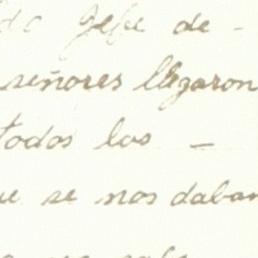 do Jefe de -
señores llegaron
todos los -
ue se nos daban